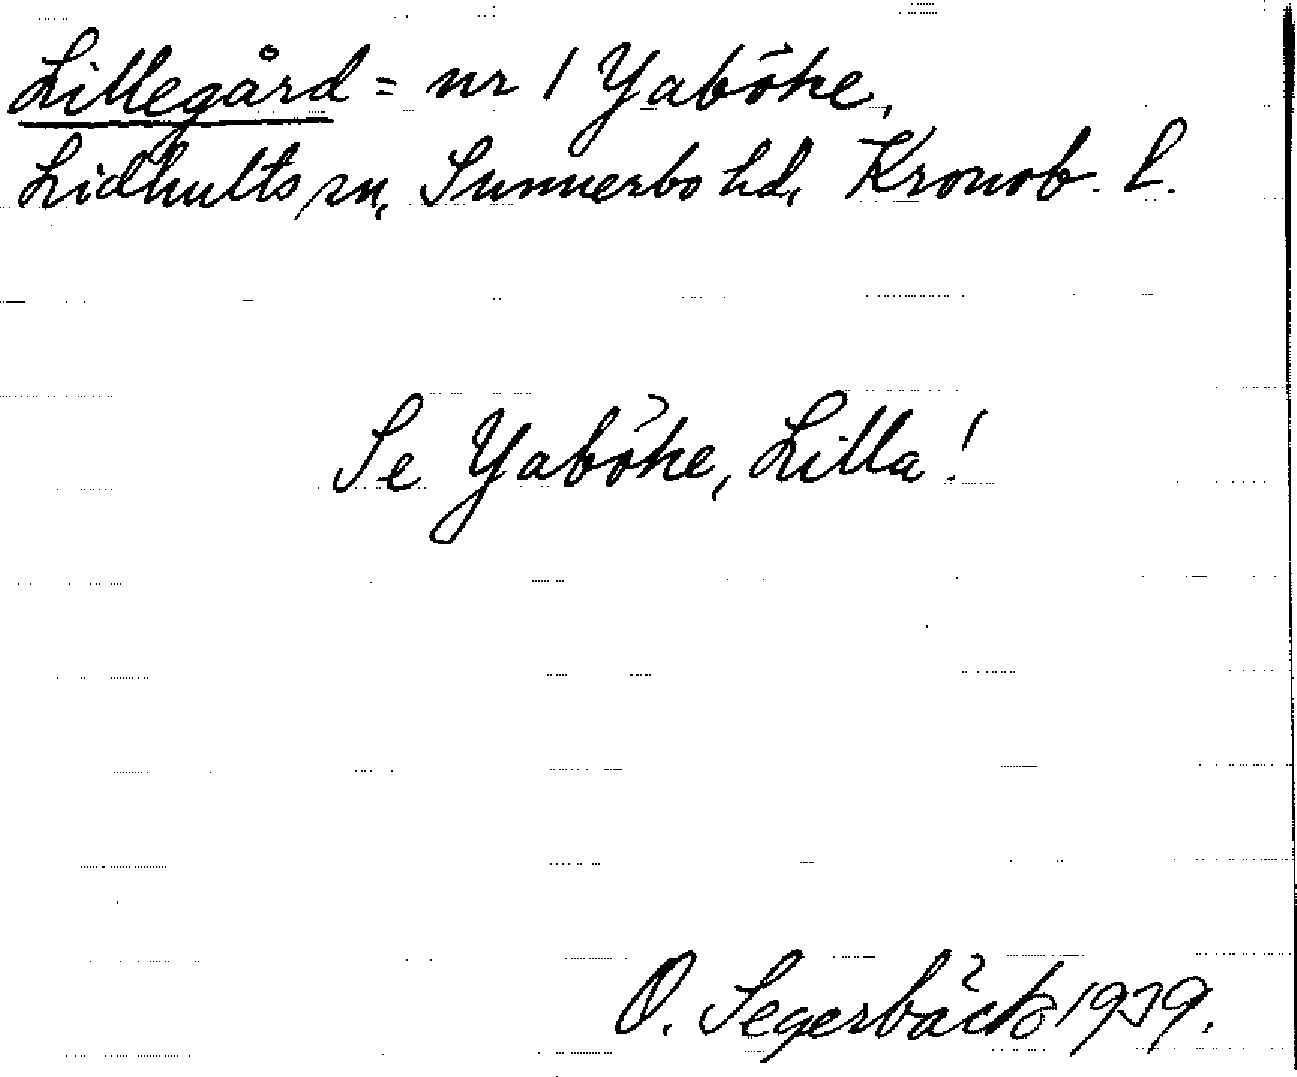 Lillegård = nr 1 Yaböke,
Lidhults sn, Sunnerbo hd, Kronob. l.
Se Yaböke, Lilla!
O. Segerbäck 1939.